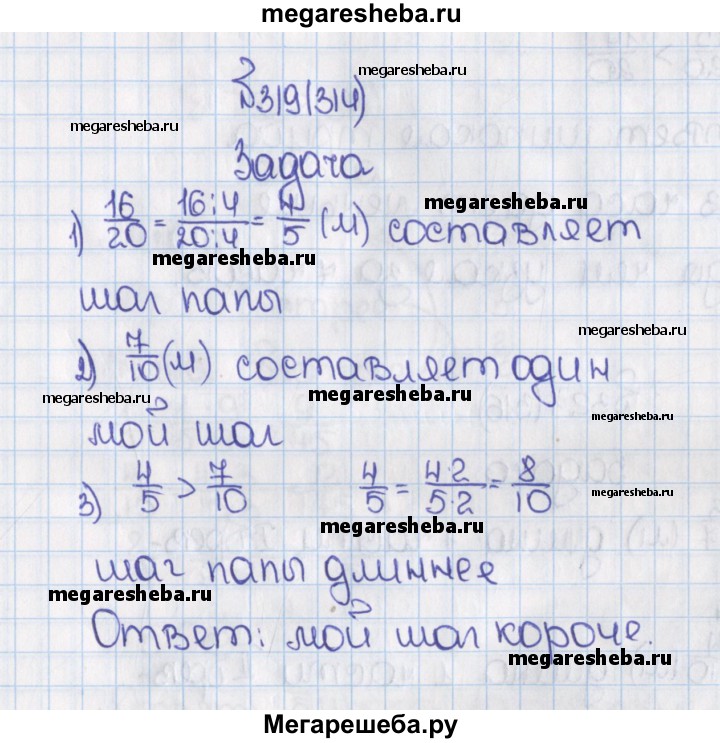 megaresheba.ru
№319(314)
megaresheba.ru
megaresheba.ru
Задача
1) 16/20 = 16:4/20:4 = 4/5 (м) составляет
megaresheba.ru
megaresheba.ru
шаг папы
megaresheba.ru
2) 7/10 (м) составляет один
megaresheba.ru
megaresheba.ru
megaresheba.ru
мой шаг
3) 4/5 > 7/10 4/5 = 4·2/5·2 = 8/10
megaresheba.ru
megaresheba.ru
шаг папы длиннее
megaresheba.ru
Ответ: мой шаг короче.
megaresheba.ru
Мегарешеба.ру